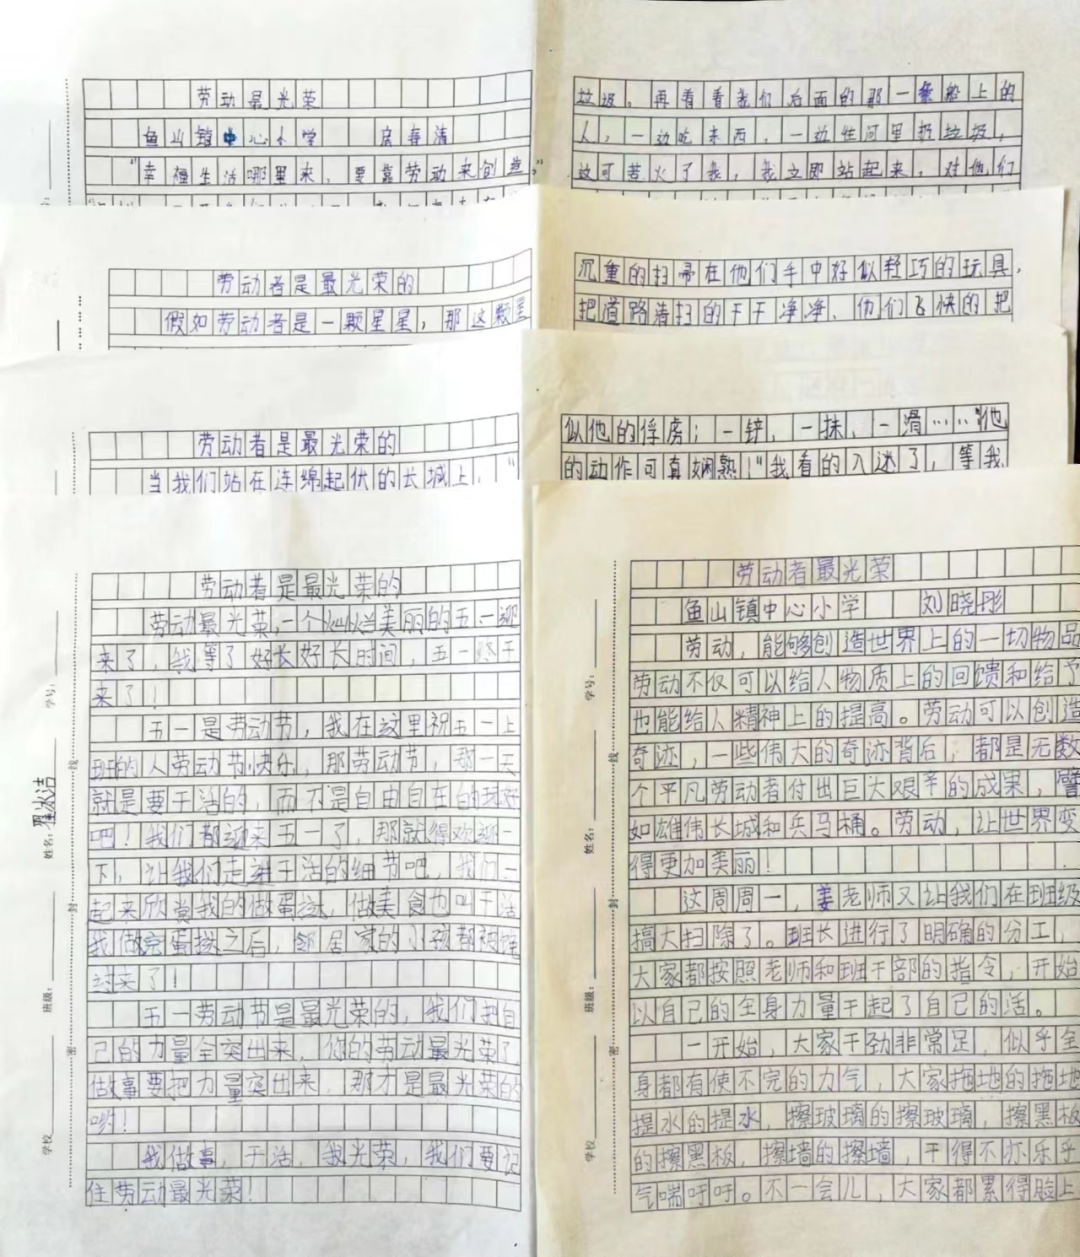 劳动最光荣
鱼山镇中心小学
"幸福生活哪里来，要靠劳动来创造。"
垃圾。再看看我们后面的那一艘船上的
人，一边吃东西 一边往河里扔垃圾，
这可苦火了我，我立即站起来，对他们
劳动者是最光荣的
假如劳动者是一颗星星，那这颗星
沉重的扫帚在他们手中好似轻巧的玩具，
把道路清扫的干干净净、他们飞快的把
劳动者是最光荣的
当我们站在连绵起伏的长城上，"
似他的俘虏；一锌，一抹，一滑……"他
的动作可真娴熟！"我看的入迷了，等我
劳动者是最光荣的
劳动最光荣，一个灿烂美丽的五一迎
来了，我等了好长好长时间，五一终于
来了！
五一是劳动节，我在这里祝五一上
班的人劳动节快乐，那劳动节，那一天
就是要干活的，而不是自由自在的玩好
吧！我们都迎来五一了，那就得欢迎一
下，让我们走进干活的细节吧，我们一
起来欣赏我的做蛋挞，做美食也叫干活
我做完蛋挞之后，邻居家的小孩都被馋
过来了！
五一劳动节是最光荣的，我们把自
己的力量全突出来，你的劳动最光荣了
做事要把力量突出来，那才是最光荣的
哟！
我做事，干活，我光荣，我们要记
住劳动最光荣！
学号：
姓名：
班级：
学校
密
封
线
劳动者最光荣
鱼山镇中心小学 刘晓彤
劳动，能够创造世界上的一切物品
劳动不仅可以给人物质上的回馈和给予
也能给人精神上的提高。劳动可以创造
奇迹，一些伟大的奇迹背后，都是无数
个平凡劳动者付出巨大艰辛的成果，譬
如雄伟长城和兵马桶。劳动，让世界变
得更加美丽！
这周周一，姜老师又让我们在班级
搞大扫除了。班长进行了明确的分工，
大家都按照老师和班干部的指令，开始
以自己的全身力量干起了自己的活。
一开始，大家干劲非常足，似乎全
身都有使不完的力气，大家拖地的拖地
提水的提水，擦玻璃的擦玻璃，擦黑板
的擦黑板，擦墙的擦墙，干得不亦乐乎
气喘吁吁。不一会儿，大家都累得脸上
学号：
姓名：
班级：
学校
密
封
线